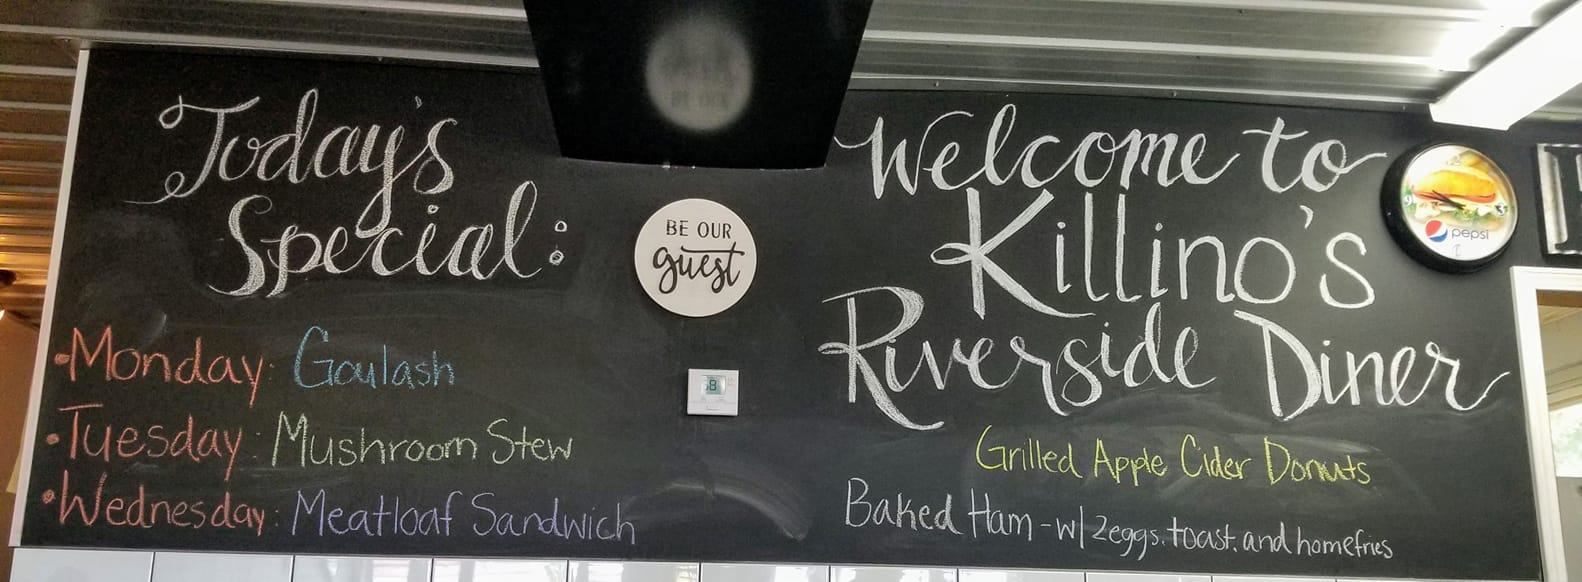 Today's
Special:
• Monday: Goulash
• Tuesday: Mushroom Stew
• Wednesday: Meatloaf Sandwich
BE OUR
guest
68
Welcome to
Killino's
Riverside Diner
Grilled Apple Cider Donuts
Baked Ham - w/ 2eggs, toast, and homefries
12
9
3
pepsi